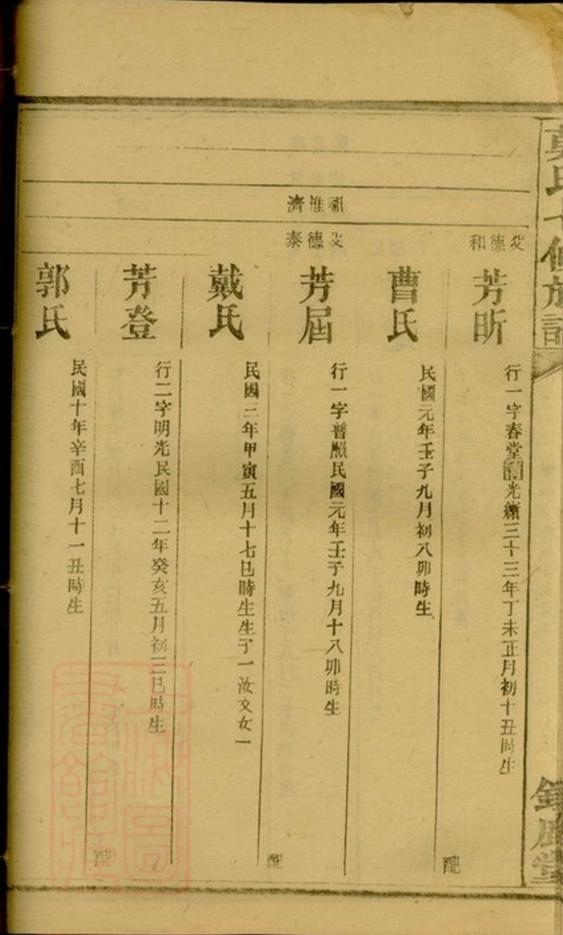 氏
修族譜
堂
祖惟濟
父德和
芳昕
行一字春堂清光緒三十三年丁未正月初十丑時生
配
曹氏
民國元年壬子九月初八卯時生
父德泰
芳屆
行一字普照民國元年壬子九月十八卯時生
配
戴氏
民國三年甲寅五月十七巳時生生子一汝文女一
芳登
行二字明光民國十二年癸亥五月初三巳時生
配
郭氏
民國十年辛酉七月十一丑時生